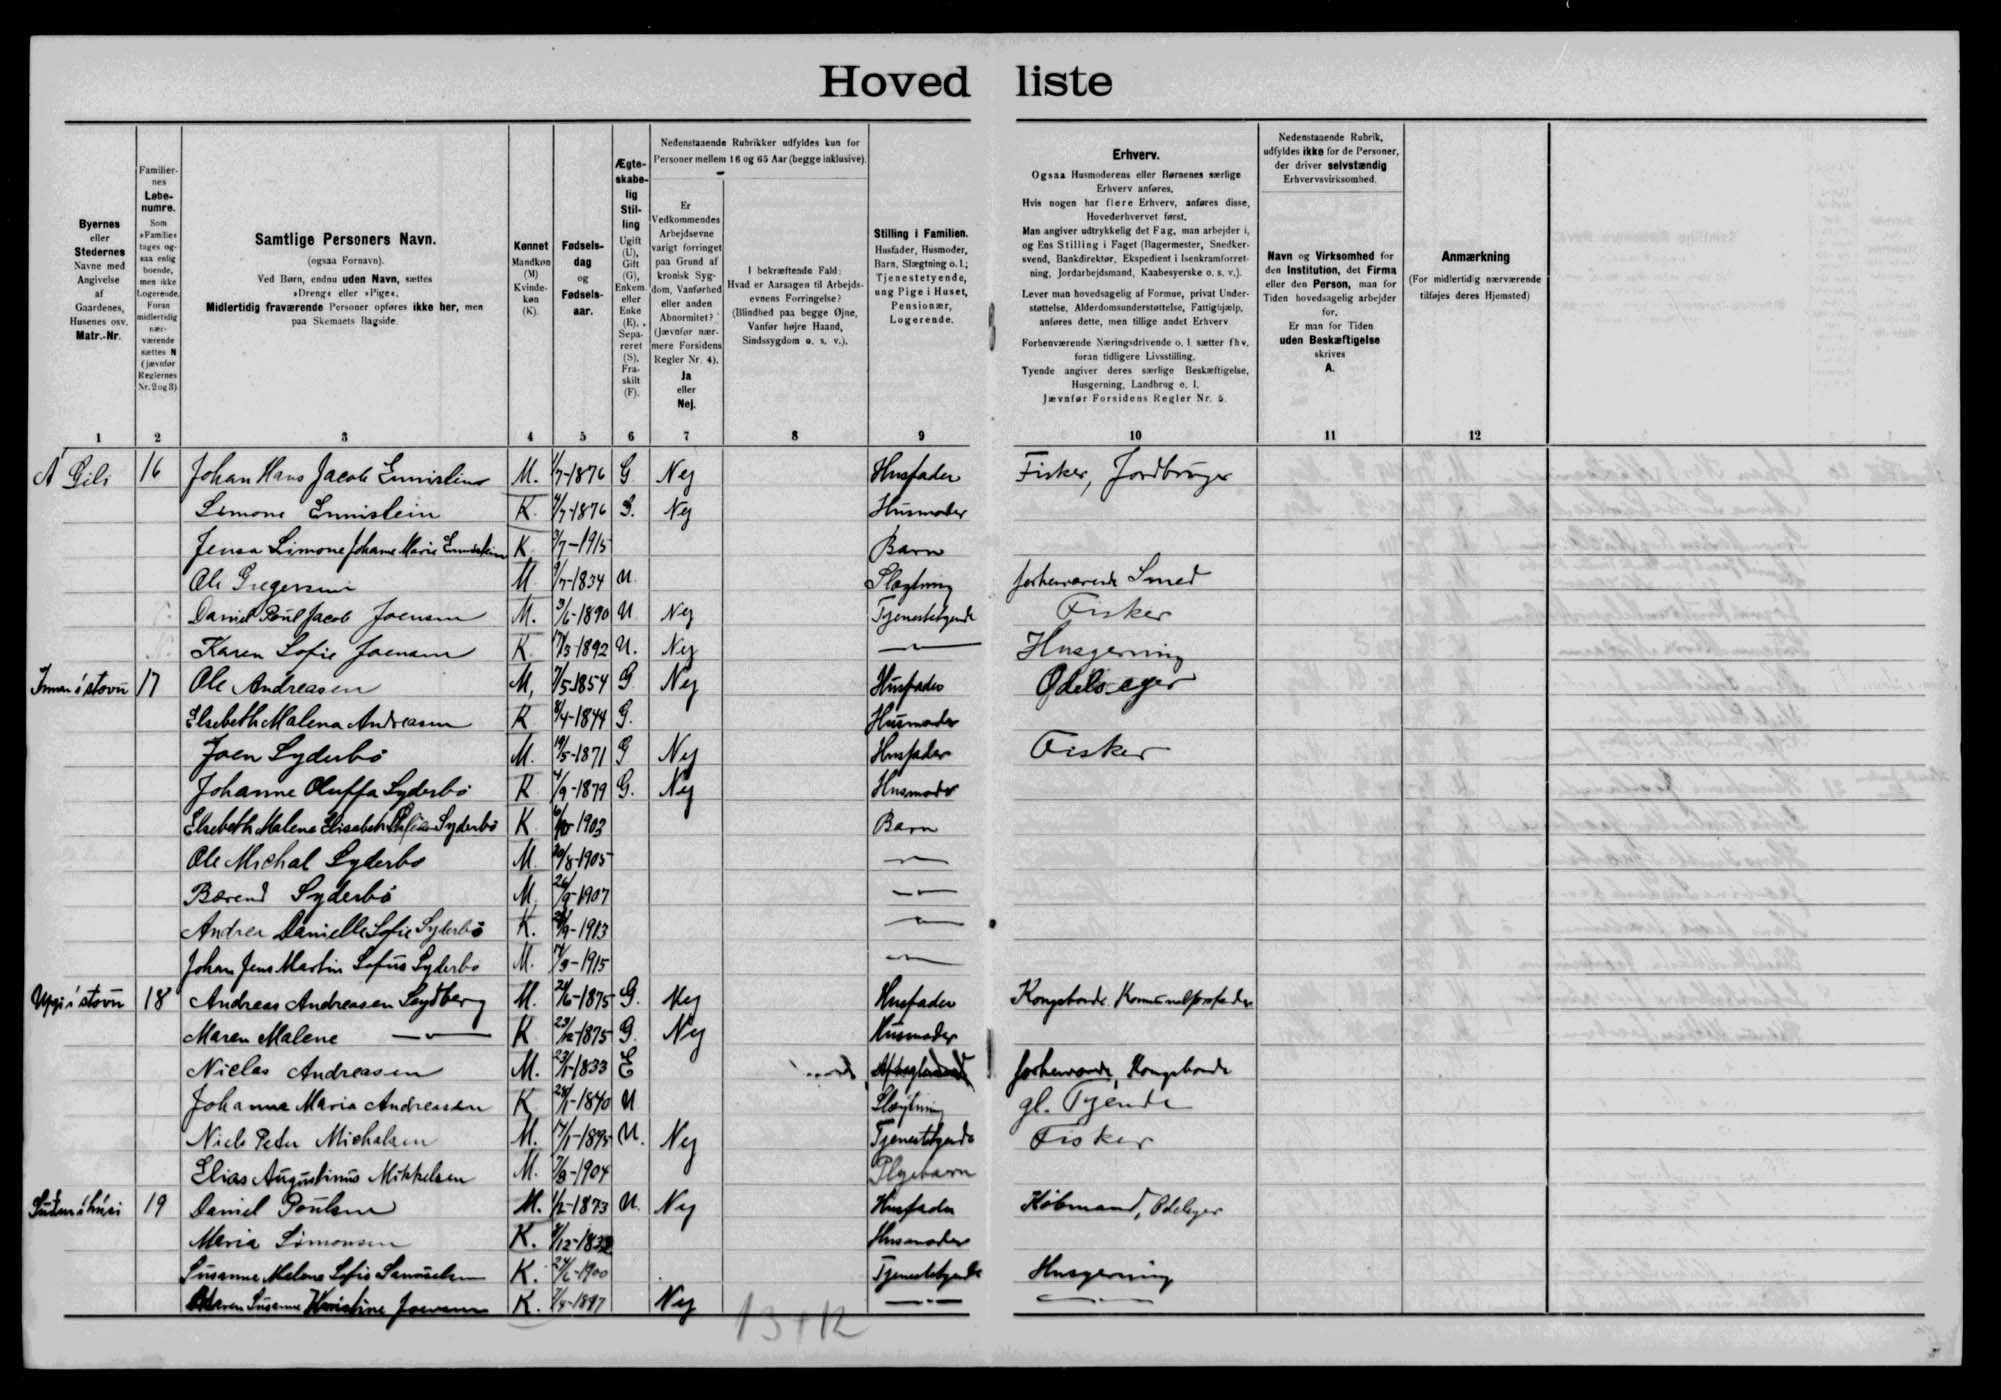 Hoved liste
Byernes eller Stedernes Navne med Angivelse af Gaardenes, Husenes osv. Matr.-Nr.
Familiernes Løbenumre. Som »Familie« tages ogsaa enlig boende, men ikke Logerende. Foran midlertidig nærværende sættes N (jævnfør Reglernes Nr. 2 og 3)
Samtlige Personers Navn. (ogsaa Fornavn). Ved Børn, endnu uden Navn, sættes »Dreng« eller »Pige«. Midlertidig fraværende Personer opføres ikke her, men paa Skemaets Bagside.
Kønnet Mandkøn (M) Kvindekøn (K).
Fødselsdag og Fødselsaar.
Ægteskabelig Stilling Ugift (U), Gift (G), Enkem. eller Enke (E), Separeret (S). Fraskilt (F).
Nedenstaaende Rubrikker udfyldes kun for Personer mellem 16 og 65 Aar (begge inklusive).
Er Vedkommendes Arbejdsevne varigt forringet paa Grund af kronisk Sygdom, Vanførhed eller anden Abnormitet? (Jævnfør nærmere Forsidens Regler Nr. 4). Ja eller Nej.
I bekræftende Fald: Hvad er Aarsagen til Arbejdsevnens Forringelse? (Blindhed paa begge Øjne, Vanfør højre Haand, Sindssygdom o. s. v.).
Stilling i Familien. Husfader, Husmoder, Barn, Slægtning o. l.; Tjenestetyende, ung Pige i Huset, Pensionær, Logerende.
Erhverv.
Ogsaa Husmoderens eller Børnenes særlige Erhverv anføres.
Hvis nogen har flere Erhverv, anføres disse, Hovederhvervet først.
Man angiver udtrykkelig det Fag, man arbejder i, og Ens Stilling i Faget (Bagermester, Snedkersvend, Bankdirektør, Ekspedient i Isenkramforretning, Jordarbejdsmand, Kaabesyerske o. s. v.).
Lever man hovedsagelig af Formue, privat Understøttelse, Alderdomsunderstøttelse, Fattighjælp, anføres dette, men tillige andet Erhverv
Forhenværende Næringsdrivende o. l. sætter fhv. foran tidligere Livsstilling.
Tyende angiver deres særlige Beskæftigelse, Husgerning, Landbrug o. l.
Jævnfør Forsidens Regler Nr. 5.
Nedenstaaende Rubrik, udfyldes ikke for de Personer, der driver selvstændig Erhvervsvirksomhed.
Navn og Virksomhed for den Institution, det Firma eller den Person, man for Tiden hovedsagelig arbejder for.
Er man for Tiden uden Beskæftigelse skrives A.
Anmærkning (For midlertidig nærværende tilføjes deres Hjemsted)
1 2 3 4 5 6 7 8 9 10 11 12
Á Gili 16 Johan Hans Jacob M. 1/7-1876 G Nej Husfader Fisker, Jordbruger
Simone K. 4/7-1876 G. Nej Husmoder
Jensa Simone Johanne Marie K 3/7-1915 Barn
Ole Gregersen M. 9/7-1834 U Slægtning forhenværende Smed
Daniel Poul Jacob Joensen M. 3/6-1890 U Nej Tjenestetyende Fisker
Karen Sofie Joensen K. 17/3-1892 U. Nej — Husgerning
Innan i stovu 17 Ole Andreasen M, 7/5-1854 G Nej Husfader Odelseger
Elsebeth Malena Andreasen K 8/4-1844 G. Husmoder
Joen Syderbö M. 19/5-1871 G Nej Husfader Fisker
Johanne Oluffa Syderbö K 4/9-1879 G. Nej Husmoder
Elsebeth Malene Elisabeth Syderbö K 1903 Barn
Ole Michal Syderbö M. 20/8-1905 —
Berend Syderbö M. 26/9-1907 —
Andrea Danielle Sofie Syderbö K. 1913 —
Johan Jens Martin Sofus Syderbö M. 17/3-1915 —
Uppi i stovu 18 Andreas Andreasen Sydberg M. 24/6-1875 G. Nej Husfader Kongsbonde.
Maren Malene — K 23/12-1875 G. Nej Husmoder
Niclas Andreasen M. 23/1-1833 E forhenværende Kongsbonde
Johanna Maria Andreasen K 28/1-1840 U Slægtning gl. Tyende
Niels Peter Michalsen M. 17/1-1895 U. Nej Tjenestetyende Fisker
Elias Augustinus Mikkelsen M. 7/8-1904 Plejebarn
19 Daniel Poulsen M. 1/2-1873 U. Nej Husfader Købmand, Odelseger
Maria Simonsen K. Husmoder
Susanne Malene Sofie Samuelsen K. 24/6-1900 Tjenestetyende Husgerning
Maren Susanne Kristine Joensen K. 7/4-1897 Nej — —
13+12